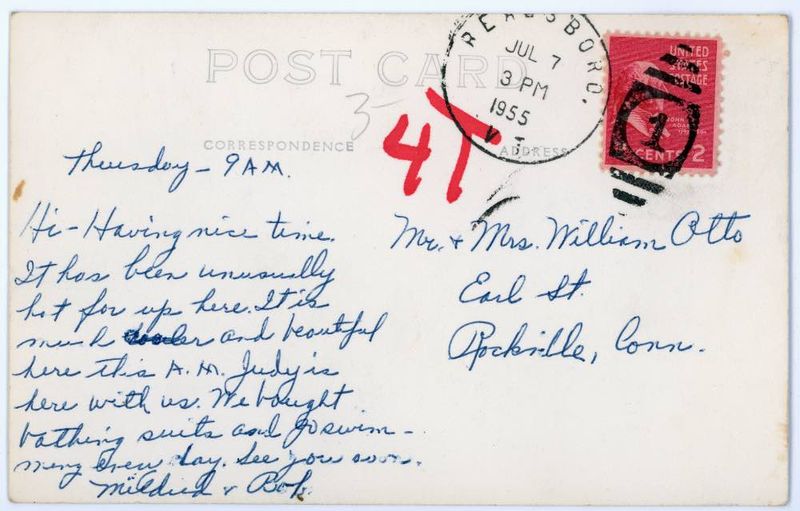 READSBORO.
JUL 7
3 PM
1955
VT
UNITED
STATES
POSTAGE
JOHN
ADAMS
CENTS 2
1
POST CARD
3-
4T
CORRESPONDENCE
ADDRESS
Thursday - 9 A.M.
Hi - Having nice time.
It has been unusually
hot for up here. It is
much cooler and beautiful
here this A.M. Judy is
here with us. We bought
bathing suits and go swim-
ming every day. See you soon.
Mildred & Bob.
Mr. & Mrs. William Otto
Earl St.
Rockville, Conn.